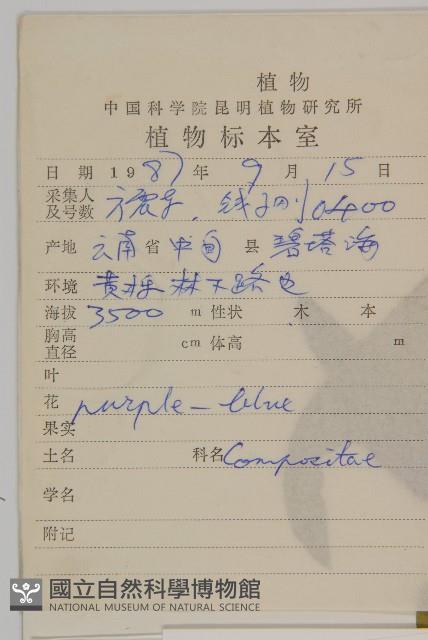 植物
中国科学院昆明植物研究所
植物标本室
日期 1987年 9月 15日
采集人
及号数 方震东、钱子刚 0400
产地 云南省 中甸 县 碧塔海
环境 黄栎林下路边
海拔 3500 m 性状 木 本
胸高
直径 cm 体高 m
叶
花 purple-blue
果实
土名 科名 Compositae
学名
附记
國立自然科學博物館
NATIONAL MUSEUM OF NATURAL SCIENCE